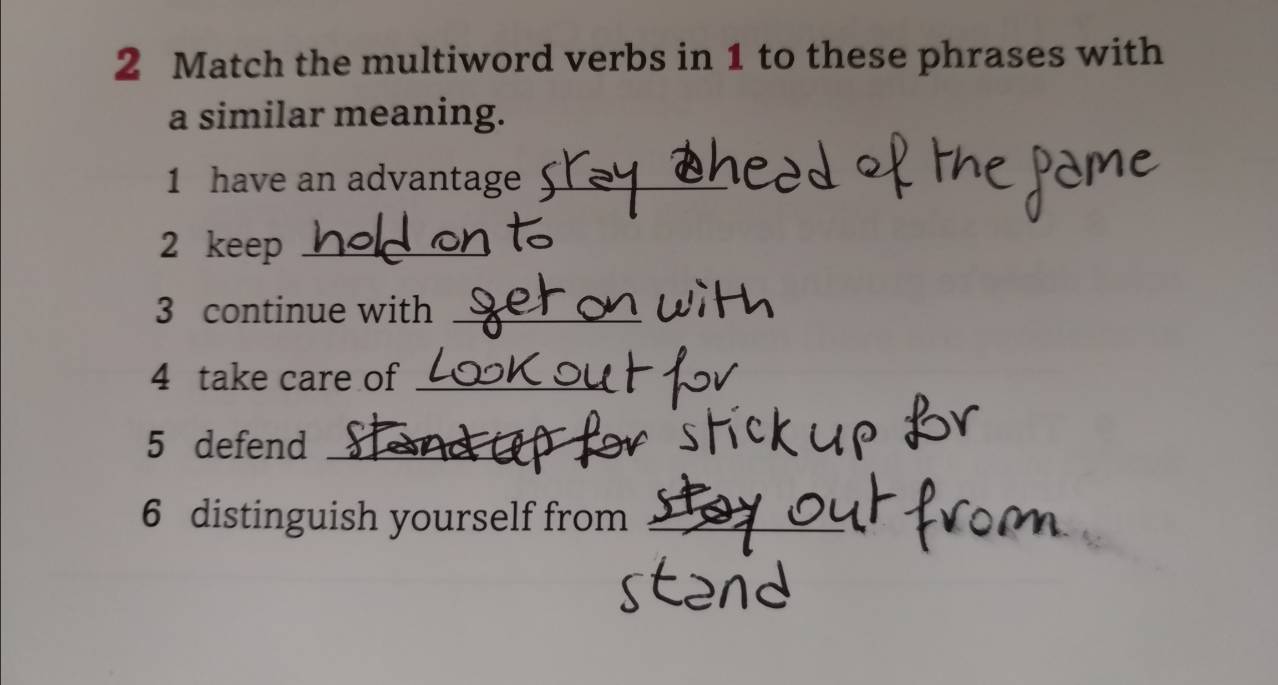 2 Match the multiword verbs in 1 to these phrases with
a similar meaning.
1 have an advantage stay ahead of the game
2 keep hold on to
3 continue with get on with
4 take care of Look out for
5 defend stand up for stick up for
6 distinguish yourself from stay out from
stand